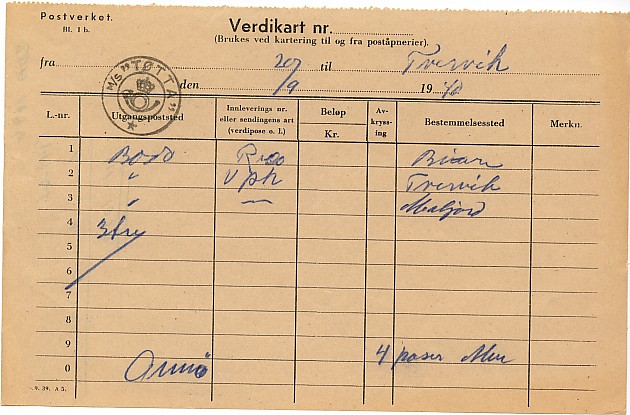 Postverket.
Bl. 1 b.
Verdikart nr.
(Brukes ved kartering til og fra poståpnerier).
fra 20/9 til Tvervik
M/S "TØTTA"
den 19 40
L.-nr. Utgangspoststed Innleverings nr. eller sendingens art (verdipose o. l.) Beløp Kr. Av-kryss-ing Bestemmelsessted Merkn.
1 Bodø
2 " Vph Tvervik
3 "
4 3 frs
5
6
7
8
9 4 poser
0
-. 9. 39. A 5.